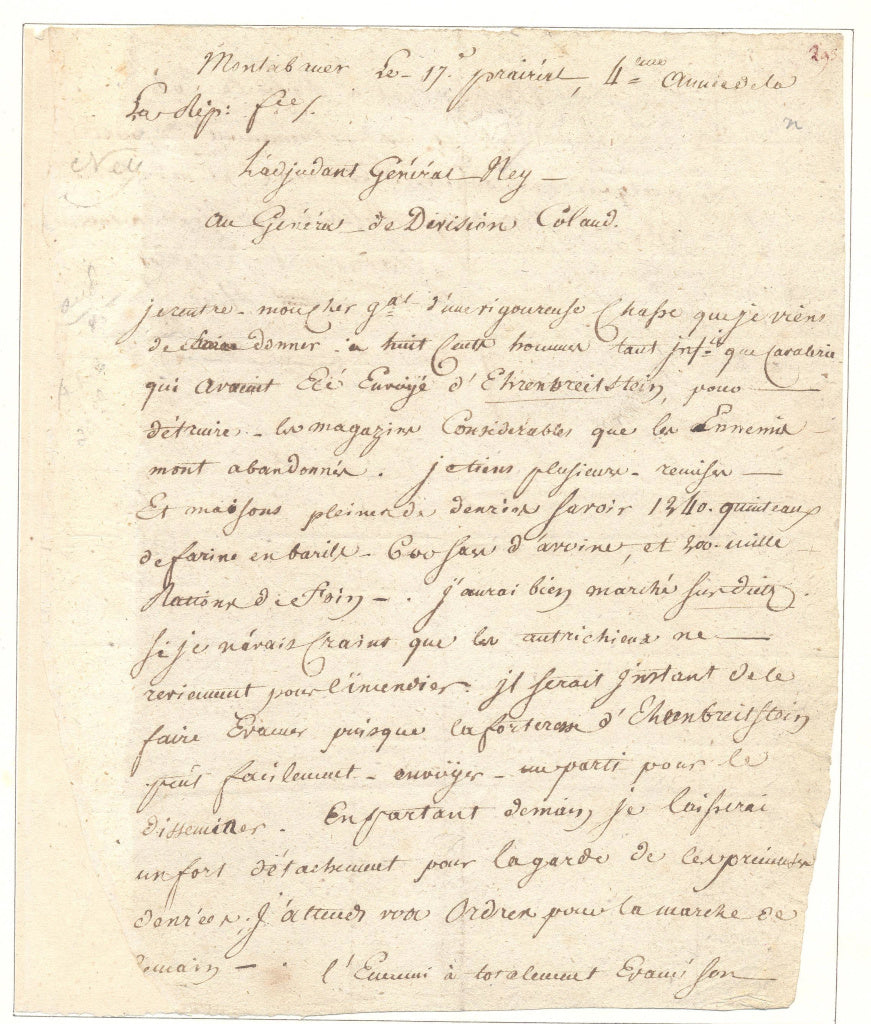 Montabauer Le 17.e prairial, 4.eme année de la
La Rép: fse/.
Ney
L'adjudant Général Ney
au Général de Division Colaud.
je rentre mon cher gal d'une rigoureuse Chasse que je viens
de donner a huit Cents hommes tant jnf.ie que Cavalerie
qui avaient Eté Envoyé d'Ehrenbreitstein, pour
détruire les magazins Considerables que les Ennemis
mont abandonnés. je tiens plusieurs remises
Et maisons pleines de denrées savoir 1240. quinteaux
de farine en barils 600 sacs d'avoine, et 200. mille
Rations de Foin. j'aurai bien marché sur dietz.
si je n'avais Craint que les autrichiens ne
reviennent pour l'incendier. jl serait jnstant de le
faire Evacuer puisque la forteresse d'Ehrenbreitstein
peut facilement envoyer un parti pour le
disseminer. En partant demain je laisserai
un fort détachement pour la garde de ces
denrées, J'attends vos Ordres pour la marche de
demain. l'Ennemi à totalement Evacué son